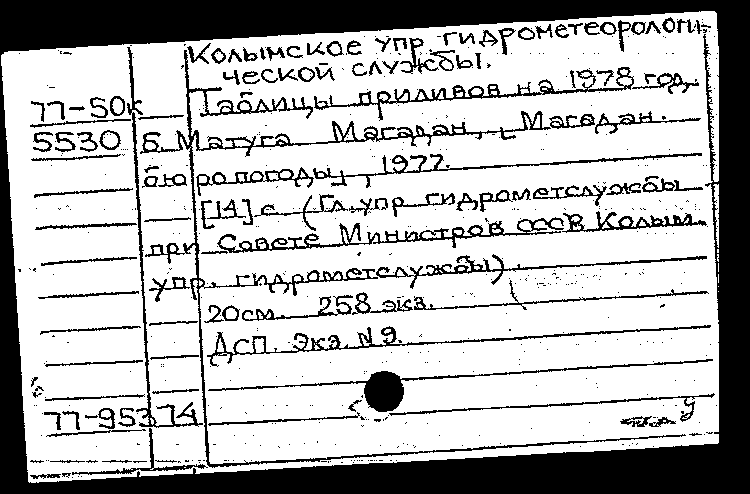 Колымское упр. гидрометеорологи-
ческой службы.
77-50к Таблицы приливов на 1978 год.
5530 Б. Матуга Магадан, [Магадан.
бюро погоды], 1977.
[14] с. (Гл. упр гидрометслужбы
при Совете Министров СССР. Колым.
упр. гидрометслужбы).
20см. 258 экз.
ДСП. Экз. N 9.
77-95374